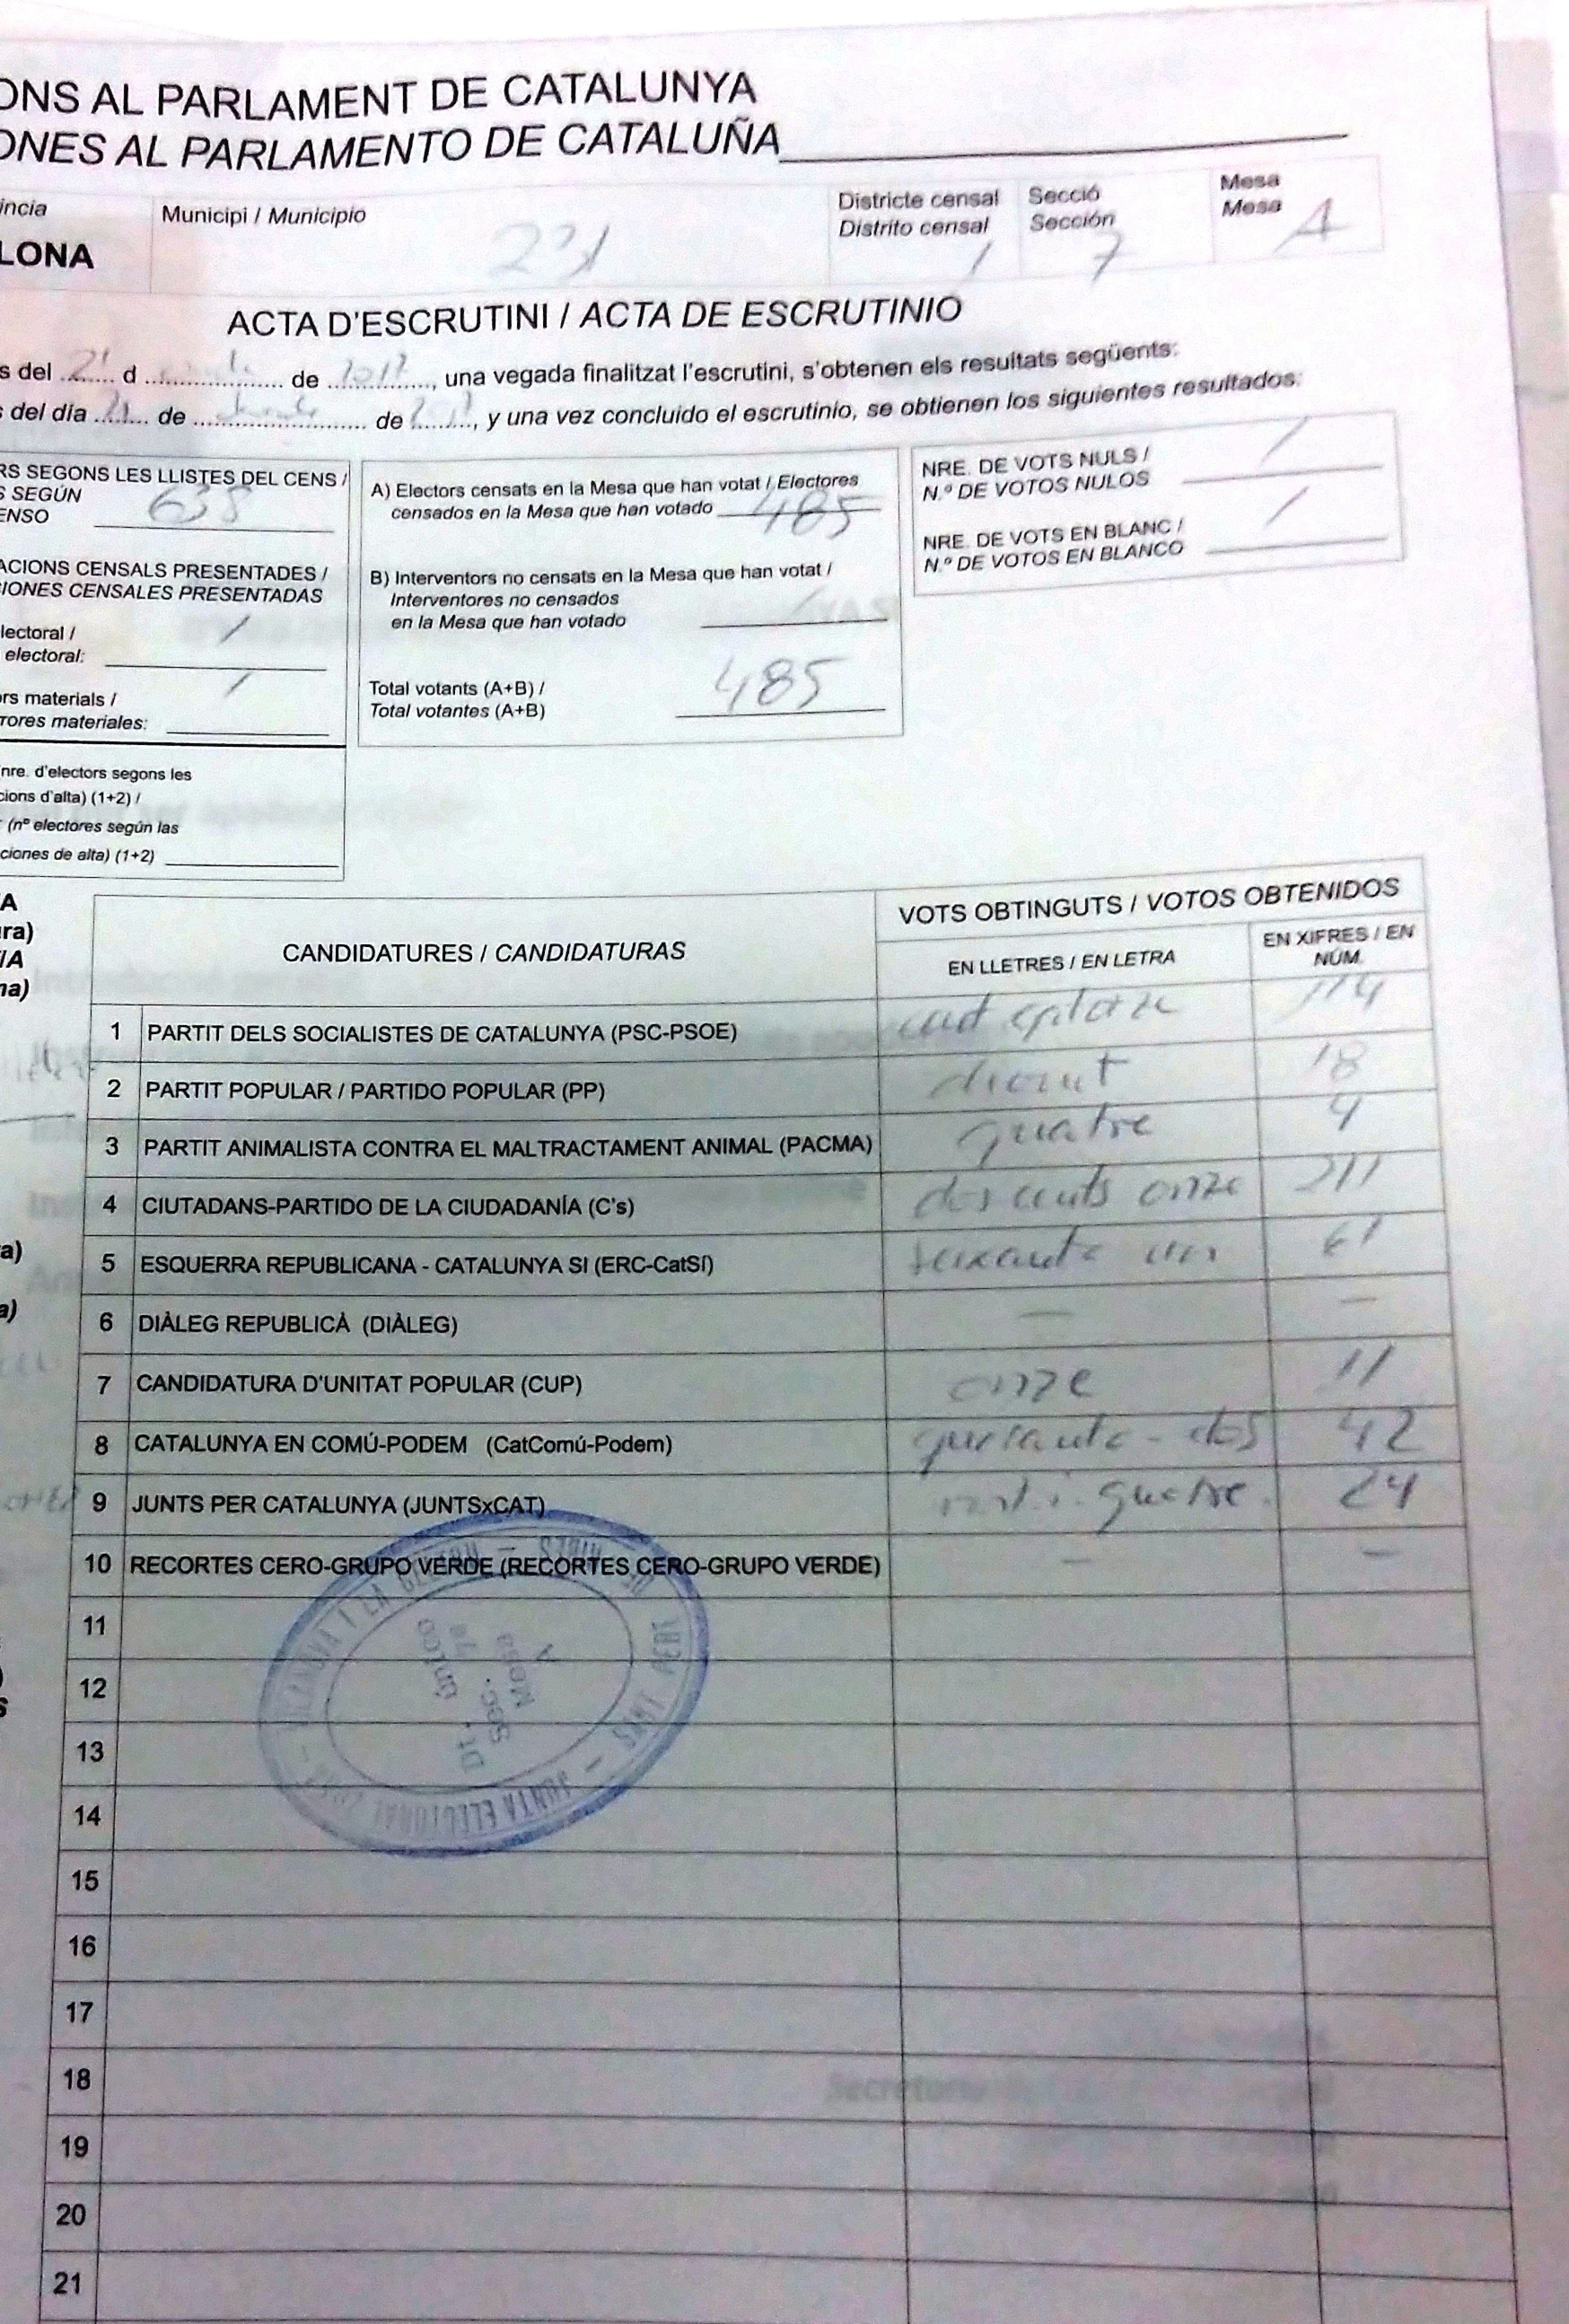 ONS AL PARLAMENT DE CATALUNYA
ONES AL PARLAMENTO DE CATALUÑA
incia
LONA
Municipi / Municipio
231
Districte censal
Distrito censal
1
Secció
Sección
7
Mesa
Mesa
A
ACTA D'ESCRUTINI / ACTA DE ESCRUTINIO
s del 21 d de 2017, una vegada finalitzat l'escrutini, s'obtenen els resultats següents:
s del día 21 de de 2017, y una vez concluido el escrutinio, se obtienen los siguientes resultados:
RS SEGONS LES LLISTES DEL CENS /
S SEGÚN
ENSO 638
ACIONS CENSALS PRESENTADES /
IONES CENSALES PRESENTADAS
lectoral /
electoral: /
rs materials /
rores materiales: /
nre. d'electors segons les
cions d'alta) (1+2) /
(nº electores según las
ciones de alta) (1+2)
A) Electors censats en la Mesa que han votat / Electores
censados en la Mesa que han votado 485
B) Interventors no censats en la Mesa que han votat /
Interventores no censados
en la Mesa que han votado
Total votants (A+B) /
Total votantes (A+B) 485
NRE. DE VOTS NULS /
N.º DE VOTOS NULOS /
NRE. DE VOTS EN BLANC /
N.º DE VOTOS EN BLANCO /
A
ra)
/A
na)
a)
a)
CANDIDATURES / CANDIDATURAS
VOTS OBTINGUTS / VOTOS OBTENIDOS
EN LLETRES / EN LETRA
EN XIFRES / EN
NÚM.
1 PARTIT DELS SOCIALISTES DE CATALUNYA (PSC-PSOE) cent catorze 114
2 PARTIT POPULAR / PARTIDO POPULAR (PP) divuit 18
3 PARTIT ANIMALISTA CONTRA EL MALTRACTAMENT ANIMAL (PACMA) quatre 4
4 CIUTADANS-PARTIDO DE LA CIUDADANÍA (C's) dos cents onze 211
5 ESQUERRA REPUBLICANA - CATALUNYA SI (ERC-CatSÍ) seixanta un 61
6 DIÀLEG REPUBLICÀ (DIÀLEG) — —
7 CANDIDATURA D'UNITAT POPULAR (CUP) onze 11
8 CATALUNYA EN COMÚ-PODEM (CatComú-Podem) quranta - dos 42
9 JUNTS PER CATALUNYA (JUNTSxCAT) vint.i.quatre. 24
10 RECORTES CERO-GRUPO VERDE (RECORTES CERO-GRUPO VERDE) — —
11
12
13
14
15
16
17
18
19
20
21
JUNTA ELECTORAL
SANT PERE DE RIBES
VILANOVA I LA GELTRÚ
Dt. único
Sec. 7a
Mesa A